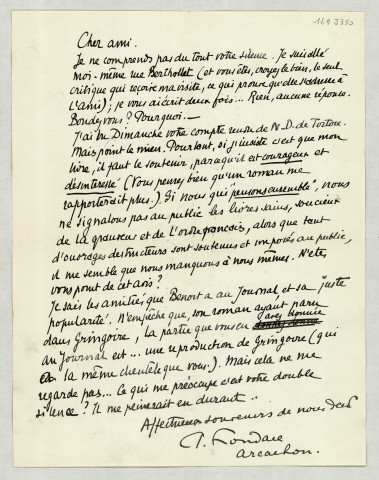 149 3350
Cher ami.
Je ne comprends pas du tout votre silence. Je suis allé
moi-même rue Berthollet (et vous êtes, croyez le bien, le seul
critique qui reçoive ma visite, ce qui prouve qu'elle s'adresse à
l'ami); je vous ai écrit deux fois... Rien, aucune réponse.
Boudez vous? Pourquoi. —
J'ai vu Dimanche votre compte rendu de N.D. de Tortose.
Mais point le mien. Pourtant, si j'insiste c'est que mon
livre, il faut le soutenir, parce qu'il est courageux et
désintéressé (Vous pensez bien qu'un roman me
rapporterait plus.) Si nous qui "pensons ensemble", nous
ne signalons pas au public les livres sains, soucieux
de la grandeur et de l'ordre français, alors que tant
d'ouvrages destructeurs sont soutenus et imposés au public,
il me semble que nous manquons à nous mêmes. N'êtes
vous point de cet avis?
Je sais les amitiés que Benoit a au Journal, et sa juste
popularité. N'empêche que, son roman ayant paru
dans Gringoire, la partie que vous en avez donnée
au Journal est... une reproduction de Gringoire (qui
a la même clientèle que vous.). Mais cela ne me
regarde pas... Ce qui me préoccupe c'est votre double
silence? Il me peinerait en durant..
Affectueux souvenirs de nous deux
P. Fondaie
Arcachon.